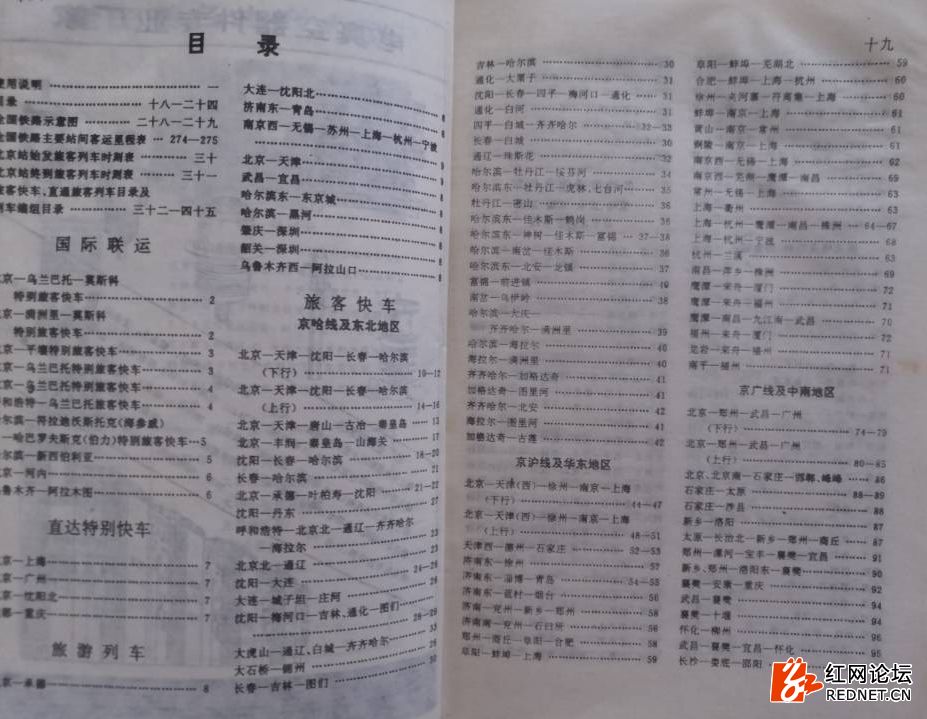 目 录
使用说明 一
目录 十八—二十四
全国铁路示意图 二十八—二十九
全国铁路主要站间客运里程表 274—275
北京站始发旅客列车时刻表 三十
北京站终到旅客列车时刻表 三十一
旅客快车、直通旅客列车目录及
列车编组目录 三十二—四十五
国际联运
北京—乌兰巴托—莫斯科
特别旅客快车 2
北京—满洲里—莫斯科
特别旅客快车 2
北京—平壤特别旅客快车 3
北京—乌兰巴托特别旅客快车 3
北京—乌兰巴托特别旅客快车 4
呼和浩特—乌兰巴托旅客快车 4
哈尔滨—符拉迪沃斯托克(海参威)
—哈巴罗夫斯克(伯力)特别旅客快车 5
哈尔滨—新西伯利亚 5
北京—河内 6
乌鲁木齐—阿拉木图 6
直达特别快车
北京—上海 7
北京—广州 7
北京—沈阳北 7
成都—重庆 7
旅游列车
北京—承德 8
大连—沈阳北
济南东—青岛 8
南京西—无锡—苏州—上海—杭州—宁波
北京—天津 9
武昌—宜昌
哈尔滨东—东京城
哈尔滨—黑河
肇庆—深圳
韶关—深圳
乌鲁木齐西—阿拉山口
旅客快车
京哈线及东北地区
北京—天津—沈阳—长春—哈尔滨
(下行) 10—12
北京—天津—沈阳—长春—哈尔滨
(上行) 14—16
北京—天津—唐山—古冶—秦皇岛 13
北京—丰润—秦皇岛—山海关 17
沈阳—长春—哈尔滨 18—20
长春—哈尔滨 21
北京—承德—叶柏寿—沈阳 21—22
沈阳—丹东 27
呼和浩特—北京北—通辽—齐齐哈尔
—海拉尔 23
北京北—通辽 23
沈阳—大连 24—26
大连—城子坦—庄河 26
沈阳—梅河口—吉林、通化—图们
28—29
大虎山—通辽、白城—齐齐哈尔 33
大石桥—锦州
长春—吉林—图们 30
十九
吉林—哈尔滨 30
通化—大栗子 31
沈阳—长春—四平—梅河口—通化 31
通化—白河 31
四平—白城—齐齐哈尔 32—33
长春—白城 30
通辽—珠斯花 32
哈尔滨—牡丹江—绥芬河 34
哈尔滨东—牡丹江—虎林、七台河 35
牡丹江—密山 36
哈尔滨东—佳木斯—鹤岗 36
哈尔滨东—神树—佳木斯—富锦 37—38
哈尔滨—南岔—佳木斯 36
哈尔滨东—北安—龙镇 37
富锦—前进镇 49
南岔—乌伊岭 38
哈尔滨—大庆—
齐齐哈尔—满洲里 39
哈尔滨—海拉尔 40
海拉尔—满洲里 40
齐齐哈尔—加格达奇 41
加格达奇—图里河 41
齐齐哈尔—北安 42
海拉尔—图里河 41
加格达奇—古莲 42
京沪线及华东地区
北京—天津(西)—徐州—南京—上海
(下行) 44—47
北京—天津(西)—徐州—南京—上海
(上行) 48—51
天津西—德州—石家庄 52—53
济南东—徐州 57
济南东—淄博—青岛 54—55
济南东—蓝村—烟台 56
济南—兖州—新乡—郑州 58
济南南—兖州—石臼所 56
郑州—商丘—阜阳—合肥 58
阜阳—蚌埠—上海 59
阜阳—蚌埠—芜湖北 59
合肥—蚌埠—上海—杭州 60
徐州—夹河寨—符离集—上海 60
蚌埠—南京—上海 61
黄山—南京—常州 61
铜陵—南京—上海 61
南京西—无锡—上海 62
南京西—芜湖—鹰潭—南昌 62
常州—无锡—上海 63
上海—衢州 63
上海—杭州—鹰潭—南昌—株洲 64—67
上海—杭州—宁波 68
杭州—兰溪 63
南昌—萍乡—株洲 69
鹰潭—来舟—厦门 72
鹰潭—来舟—福州 71
鹰潭—南昌—九江南—武昌 70
福州—来舟—厦门 72
龙岩—来舟—福州 71
南平—福州 71
京广线及中南地区
北京—郑州—武昌—广州
(下行) 74—79
北京—郑州—武昌—广州
(上行) 80—85
北京、北京南—石家庄—邯郸、峰峰 86
石家庄—太原 88—89
石家庄—井县 86
新乡—洛阳 87
太原—长治北—新乡—郑州—商丘 87
郑州—漯河—宝丰—襄樊—宜昌 91
新乡、郑州—洛阳东—襄樊 92
襄樊—安康—重庆 93
武昌—襄樊 94
襄樊—十堰 94
怀化—柳州 96
武昌—襄樊—宜昌—怀化 95
长沙—娄底—邵阳
红网论坛
REDNET.CN